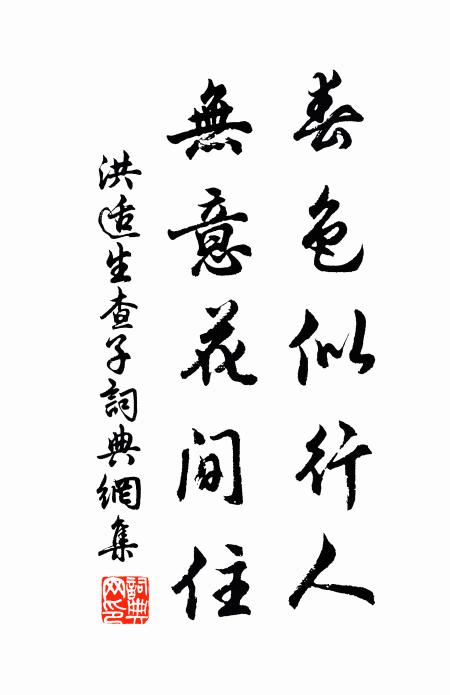 春色似行人
無意花間住
洪适生查子詞典網集
詞典網印